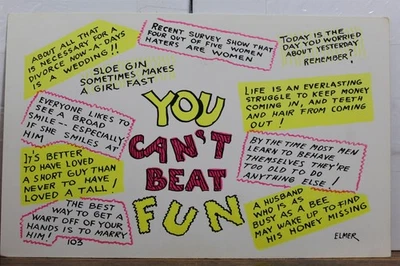 ABOUT ALL THAT
IS NECESSARY FOR A
DIVORCE NOW-A-DAYS
IS A WEDDING!!
RECENT SURVEY SHOW THAT
FOUR OUT OF FIVE WOMEN
HATERS ARE WOMEN
TODAY IS THE
DAY YOU WORRIED
ABOUT YESTERDAY
REMEMBER?
SLOE GIN
SOMETIMES MAKES
A GIRL FAST
LIFE IS AN EVERLASTING
STRUGGLE TO KEEP MONEY
COMING IN, AND TEETH
AND HAIR FROM COMING
OUT!
EVERYONE LIKES TO
SEE A BROAD
SMILE - ESPECIALLY
IF SHE SMILES AT
HIM
YOU
CAN'T
BEAT
FUN
BY THE TIME MOST MEN
LEARN TO BEHAVE
THEMSELVES THEY'RE
TOO OLD TO DO
ANYTHING ELSE!
IT'S BETTER
TO HAVE LOVED
A SHORT GUY THAN
NEVER TO HAVE
LOVED A TALL!
THE BEST
WAY TO GET A
WART OFF OF YOUR
HANDS IS TO MARRY
HIM!
103
A HUSBAND
WHO IS AS
BUSY AS A BEE
MAY WAKE UP TO FIND
HIS HONEY MISSING
ELMER